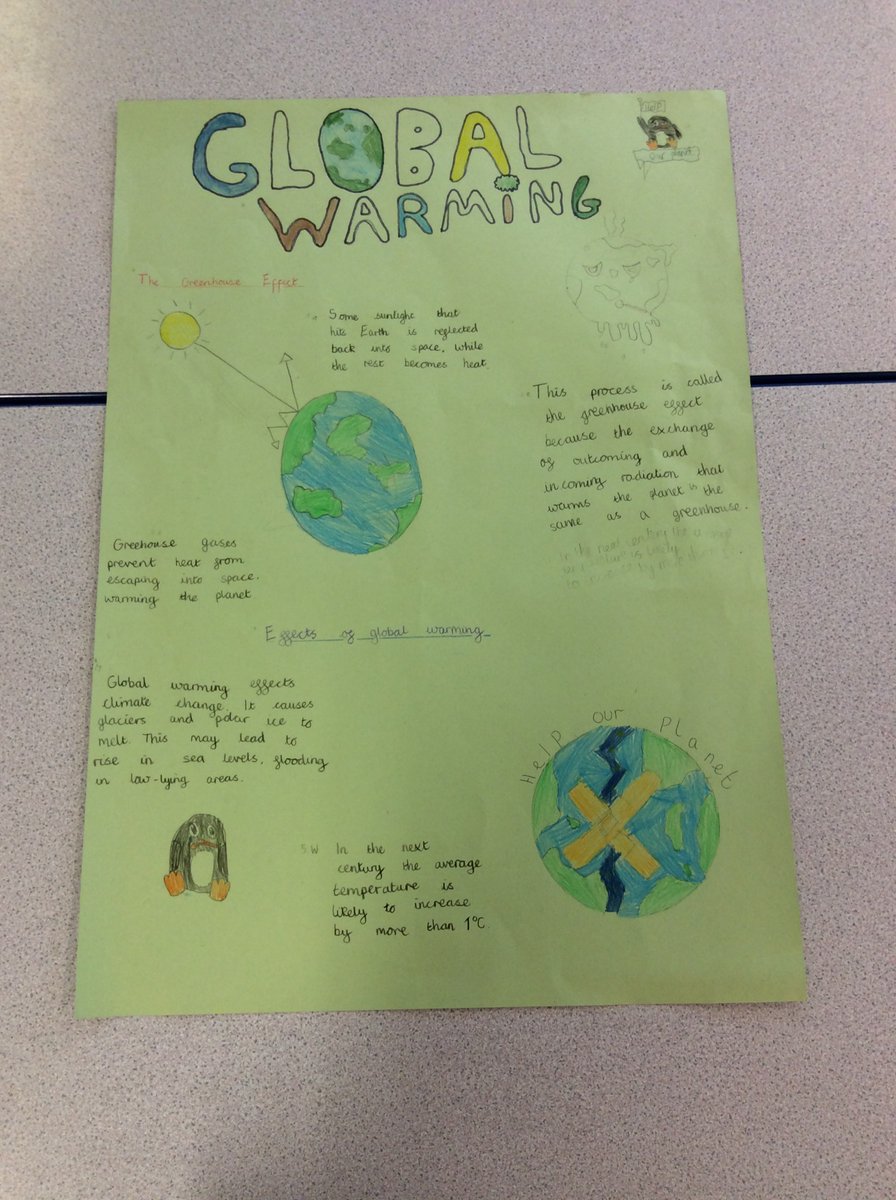 GLOBAL
WARMING
Help
our planet
The Greenhouse Effect
Some sunlight that
hits Earth is reflected
back into space, while
the rest becomes heat
This process is called
the greenhouse effect
because the exchange
of outcoming and
incoming radiation that
warms the planet is the
same as a greenhouse.
in the next century the
is likely
by more
Greehouse gases
prevent heat from
escaping into space.
warming the planet
Effects of global warming
Global warming effects
climate change. It causes
glaciers and polar ice to
melt. This may lead to
rise in sea levels, flooding
in low-lying areas.
Help our Planet
5W In the next
century the average
temperature is
likely to increase
by more than 1°C.